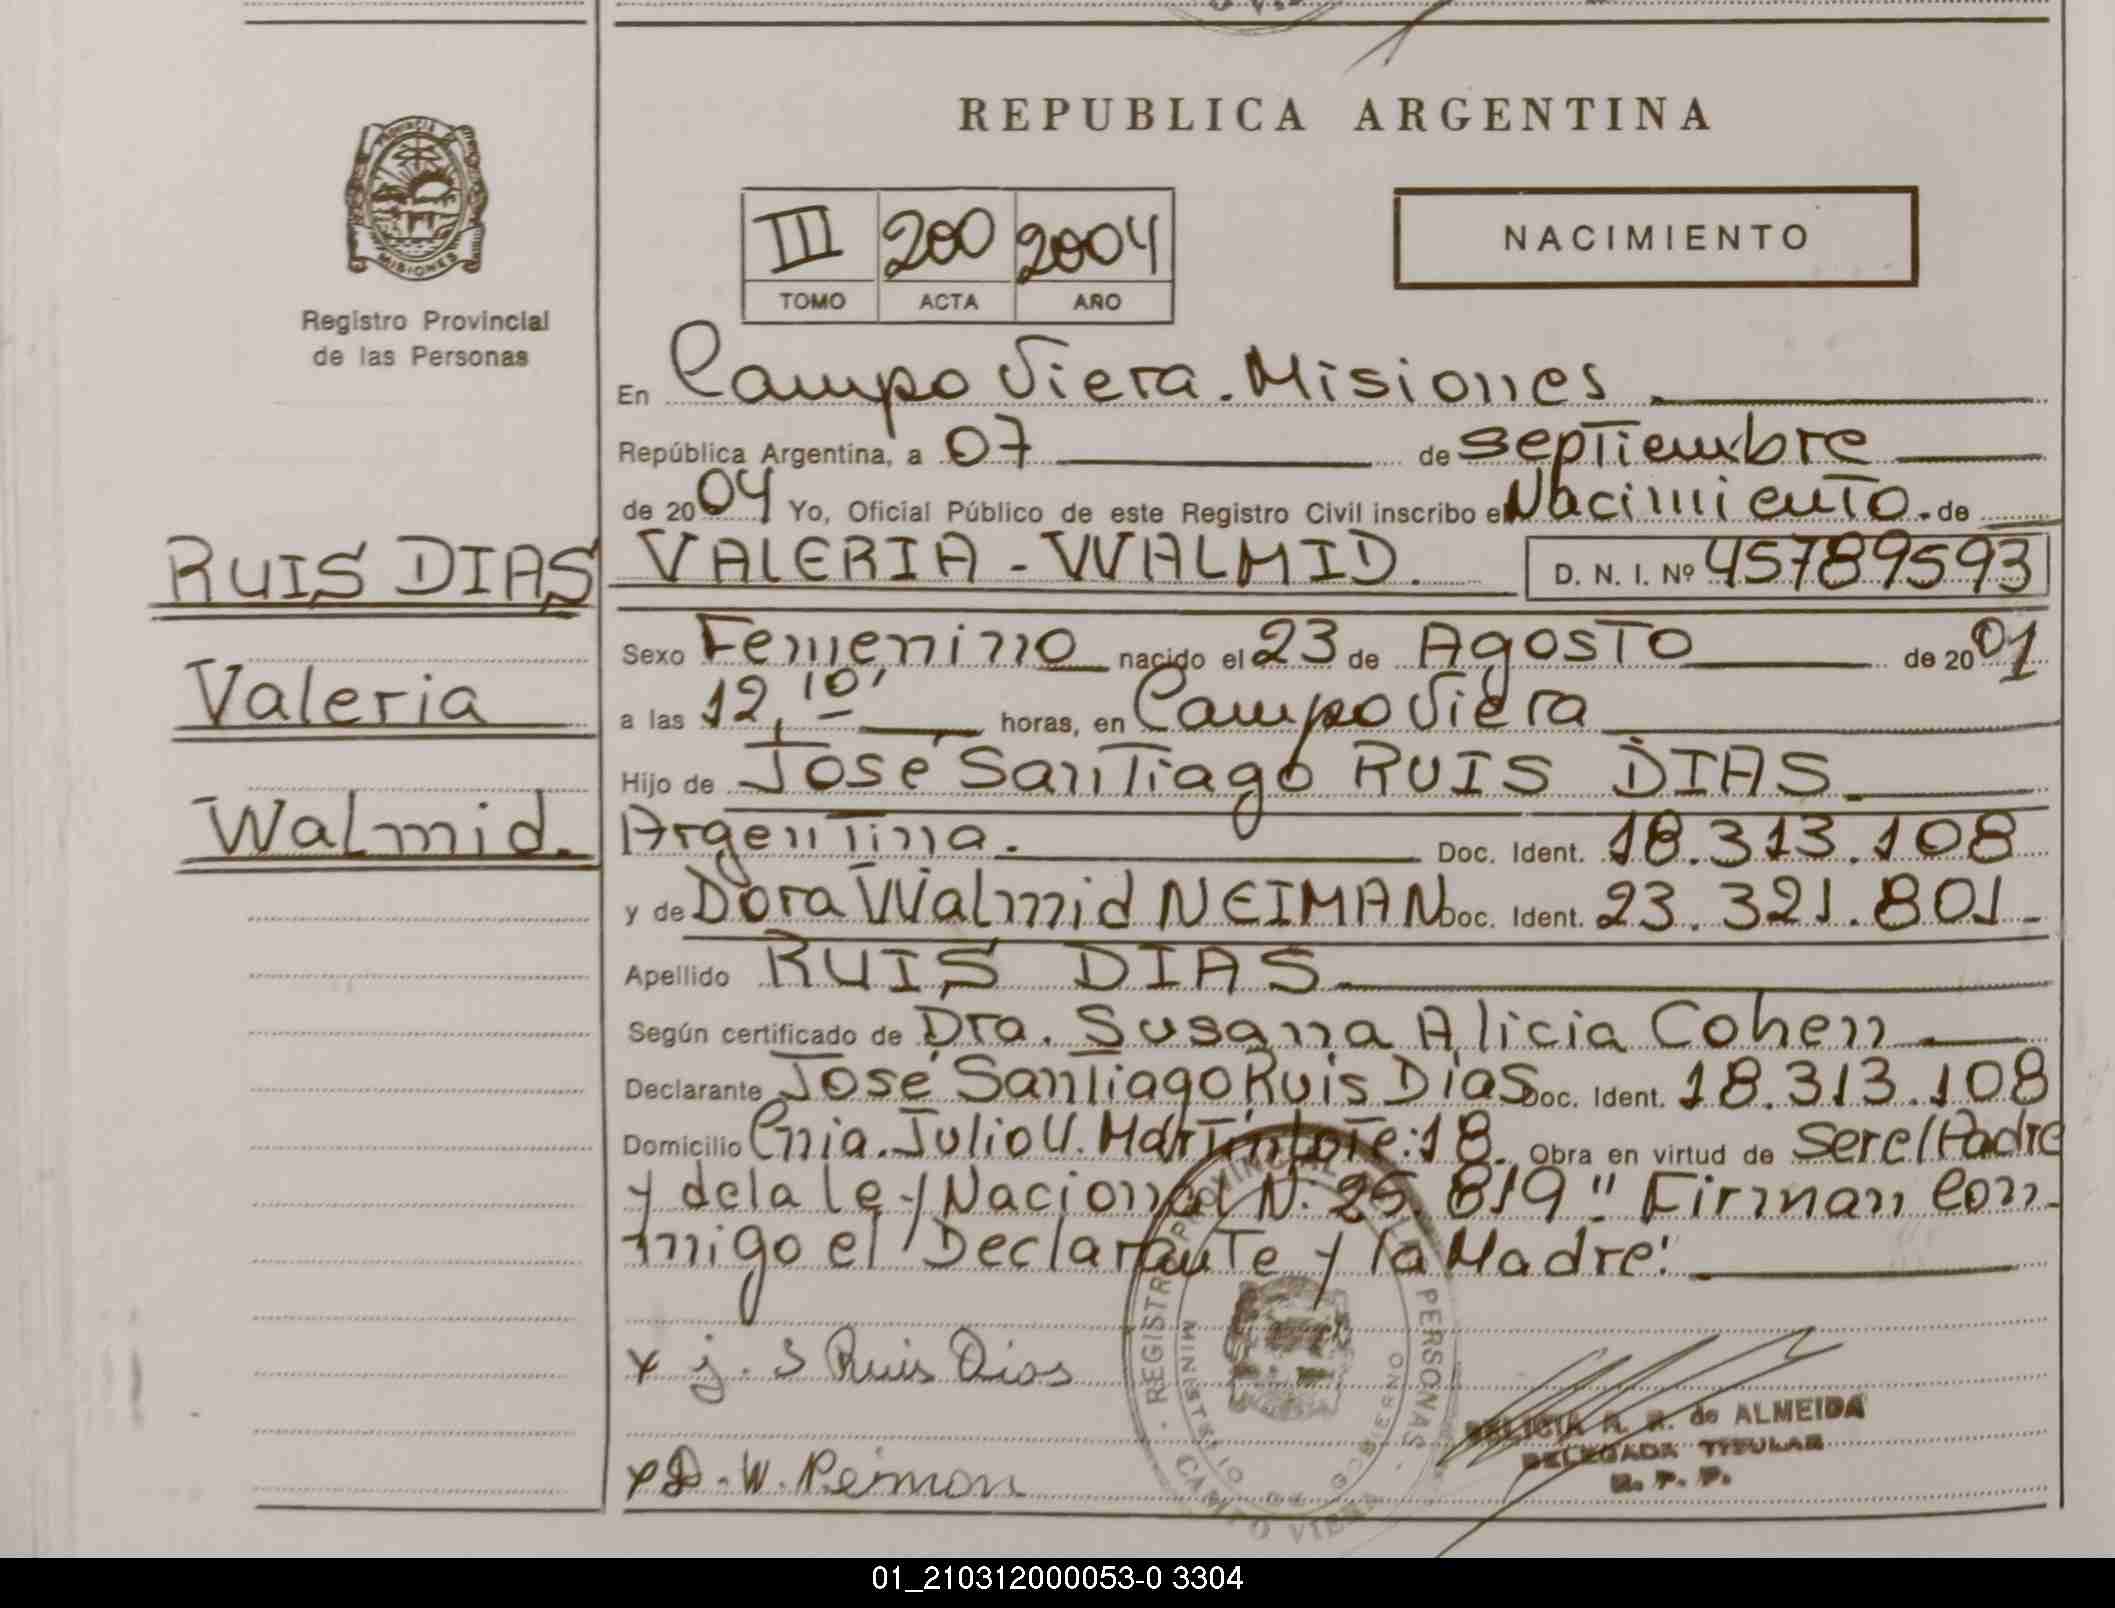 REPUBLICA ARGENTINA
PROVINCIA DE
MISIONES
Registro Provincial
de las Personas
III 200 2004
TOMO ACTA AÑO
NACIMIENTO
En Campo Viera. Misiones
República Argentina, a 07 de septiembre
de 2004 Yo, Oficial Público de este Registro Civil inscribo el Nacimiento. de
RUIS DIAS
Valeria
Walmid.
VALERIA - WALMID. D. N. I. Nº 45789593
Sexo Femenino nacido el 23 de Agosto de 2001
a las 12,10' horas, en Campo Viera
Hijo de José Santiago RUIS DIAS
Argentina. Doc. Ident. 18.313.108
y de Dora Walmid NEIMAN Doc. Ident. 23.321.801-
Apellido RUIS DIAS
Según certificado de Dra. Susana Alicia Cohen
Declarante José Santiago Ruis Dias Doc. Ident. 18.313.108
Domicilio Cnia. Julio U. Martin lote: 18. Obra en virtud de Ser el Padre
y de la ley Nacional N: 25.819" Firman Con-
migo el Declarante y la Madre:
x j. S Ruis Dias
x D. W. Neiman
REGISTRO PROVINCIAL DE LAS PERSONAS
MINISTERIO DE GOBIERNO
CAMPO VIERA
R. de ALMEIDA
DELEGADA TITULAR
R. P. P.
01_210312000053-0 3304